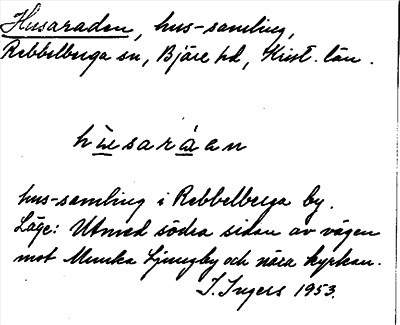 Husaraden, hus-samling,
Rebbelberga sn, Bjäre hd, Krist. län.
hùsaràan
hus-samling i Rebbelberga by.
Läge: Utmed södra sidan av vägen
mot Munka Ljungby och nära kyrkan.
I. Ingers 1953.